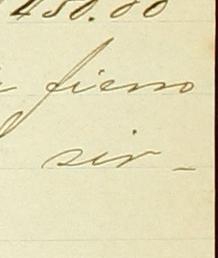 450.00
fierro
sir-